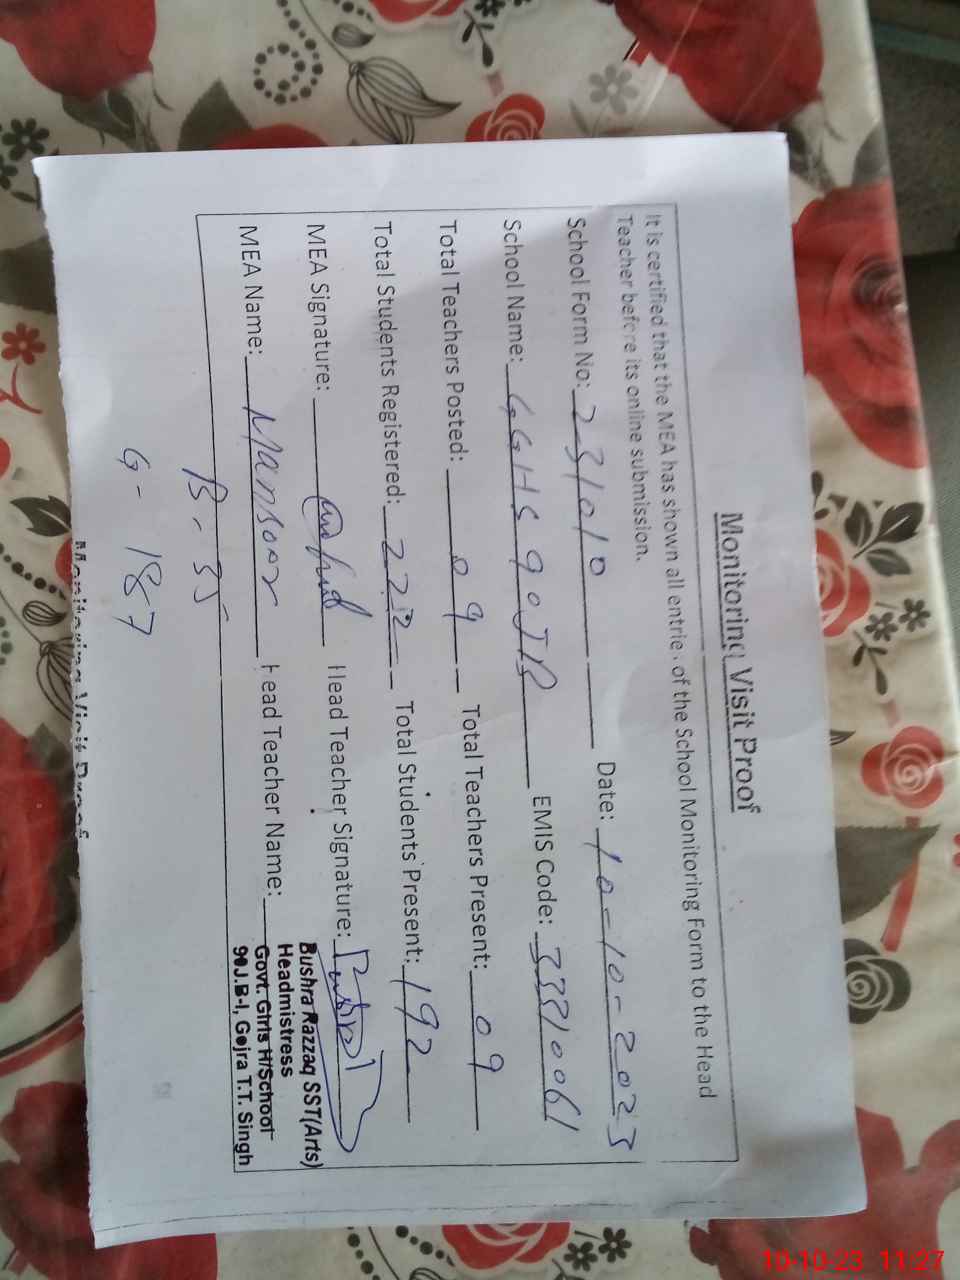 Monitoring Visit Proof
It is certified that the MEA has shown all entries of the School Monitoring Form to the Head
Teacher before its online submission.
School Form No: 231010 Date: 10-10-2023
School Name: GGHS 90JB EMIS Code: 33310061
Total Teachers Posted: 09 Total Teachers Present: 09
Total Students Registered: 222 Total Students Present: 192
MEA Signature: Head Teacher Signature:
MEA Name: Mansoor Head Teacher Name:
Bushra Razzaq SST(Arts)
Headmistress
Govt. Girls H/School
90J.B-I, Gojra T.T. Singh
B-35
G-187
Monitoring Visit Proof
10-10-23 11:27